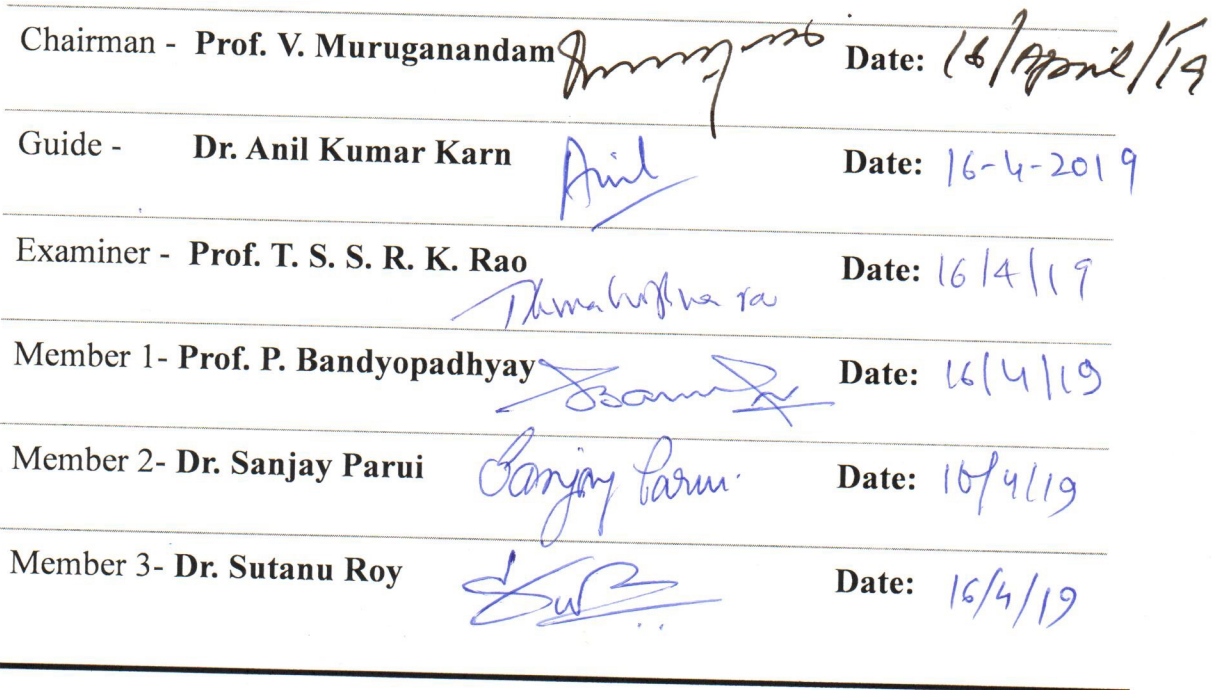 Chairman - Prof. V. Muruganandam Date: 16/April/19
Guide - Dr. Anil Kumar Karn Anil Date: 16-4-2019
Examiner - Prof. T. S. S. R. K. Rao Date: 16/4/19
Member 1- Prof. P. Bandyopadhyay Date: 16/4/19
Member 2- Dr. Sanjay Parui Sanjay Parui. Date: 16/4/19
Member 3- Dr. Sutanu Roy Date: 16/4/19